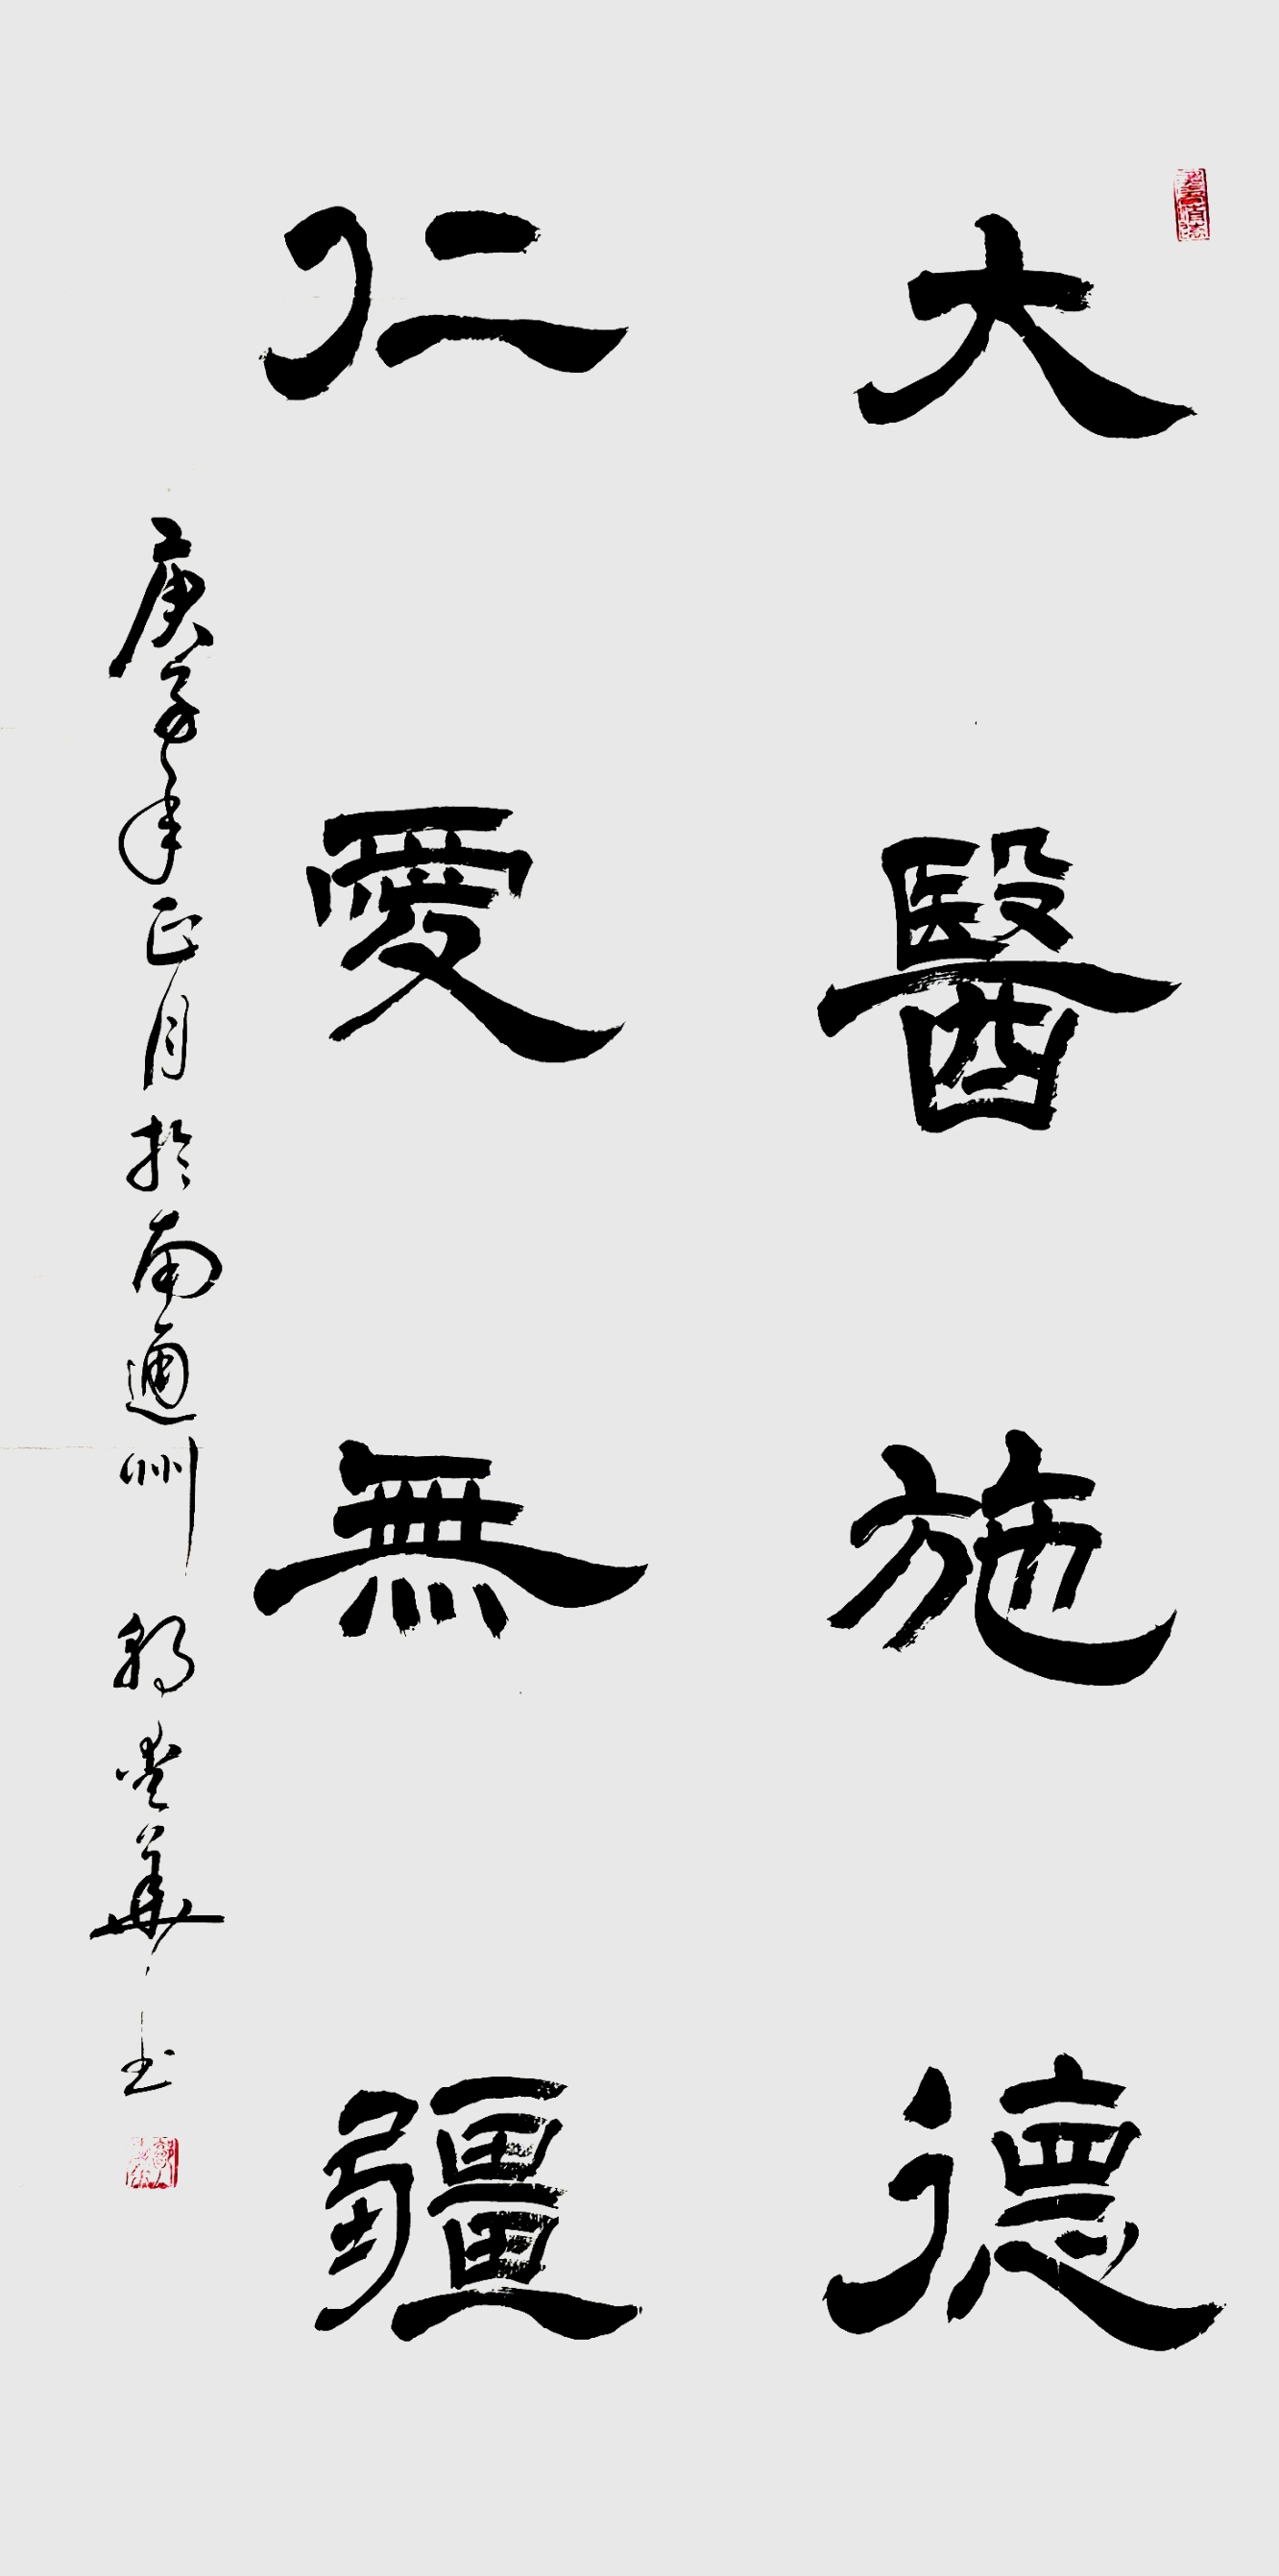 大醫施德
仁愛無疆
庚子年正月於南通州 華書